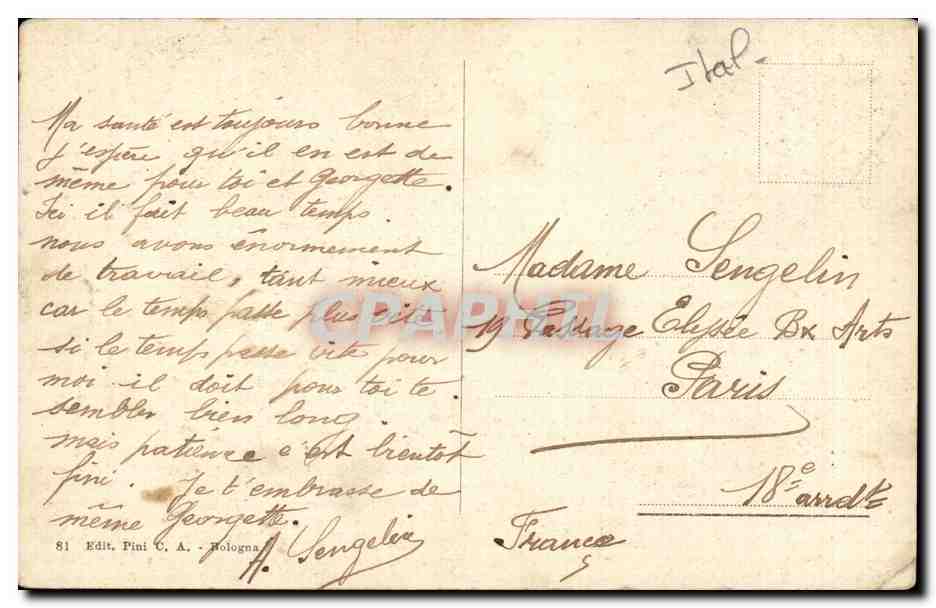 Ital.
Ma santé est toujours bonne
j'espère qu'il en est de
même pour toi et Georgette.
Ici il fait beau temps.
nous avons énormement
de travail, tant mieux
car le temps passe plus vite
si le temps passe vite pour
moi il doit pour toi te
sembler bien long.
mais patience c'est bientôt
fini. Je t'embrasse de
même Georgette.
A. Sengelin
81 Edit. Pini C. A. - Bologna
Madame Sengelin
19 Passage Elysée Bx Arts
Paris
18e arrdt
France
CPAPHIL